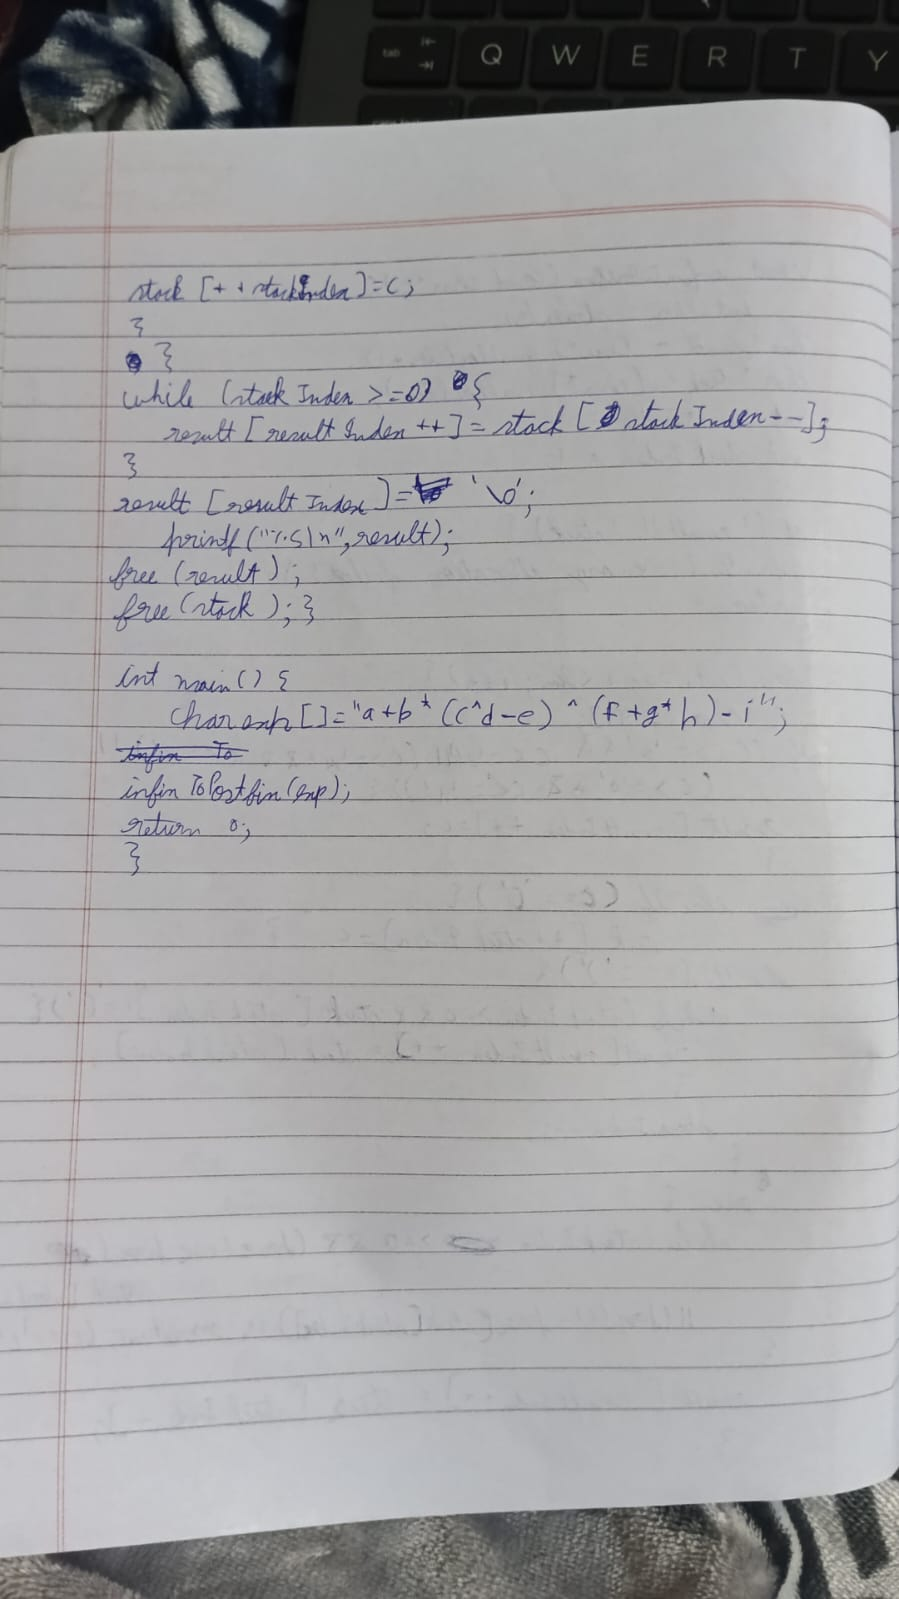 tab
Q W E R T Y
stack [++stackIndex]=c;
}
}
while (stack Index >=0) {
result [result Index ++] = stack [stack Index--];
}
result [result Index] = '\0';
printf ("%s\n", result);
free (result);
free (stack); }
int main() {
char exp []="a+b*(c^d-e)^(f+g*h)-i";
infix To
infix ToPostfix (exp);
return 0;
}